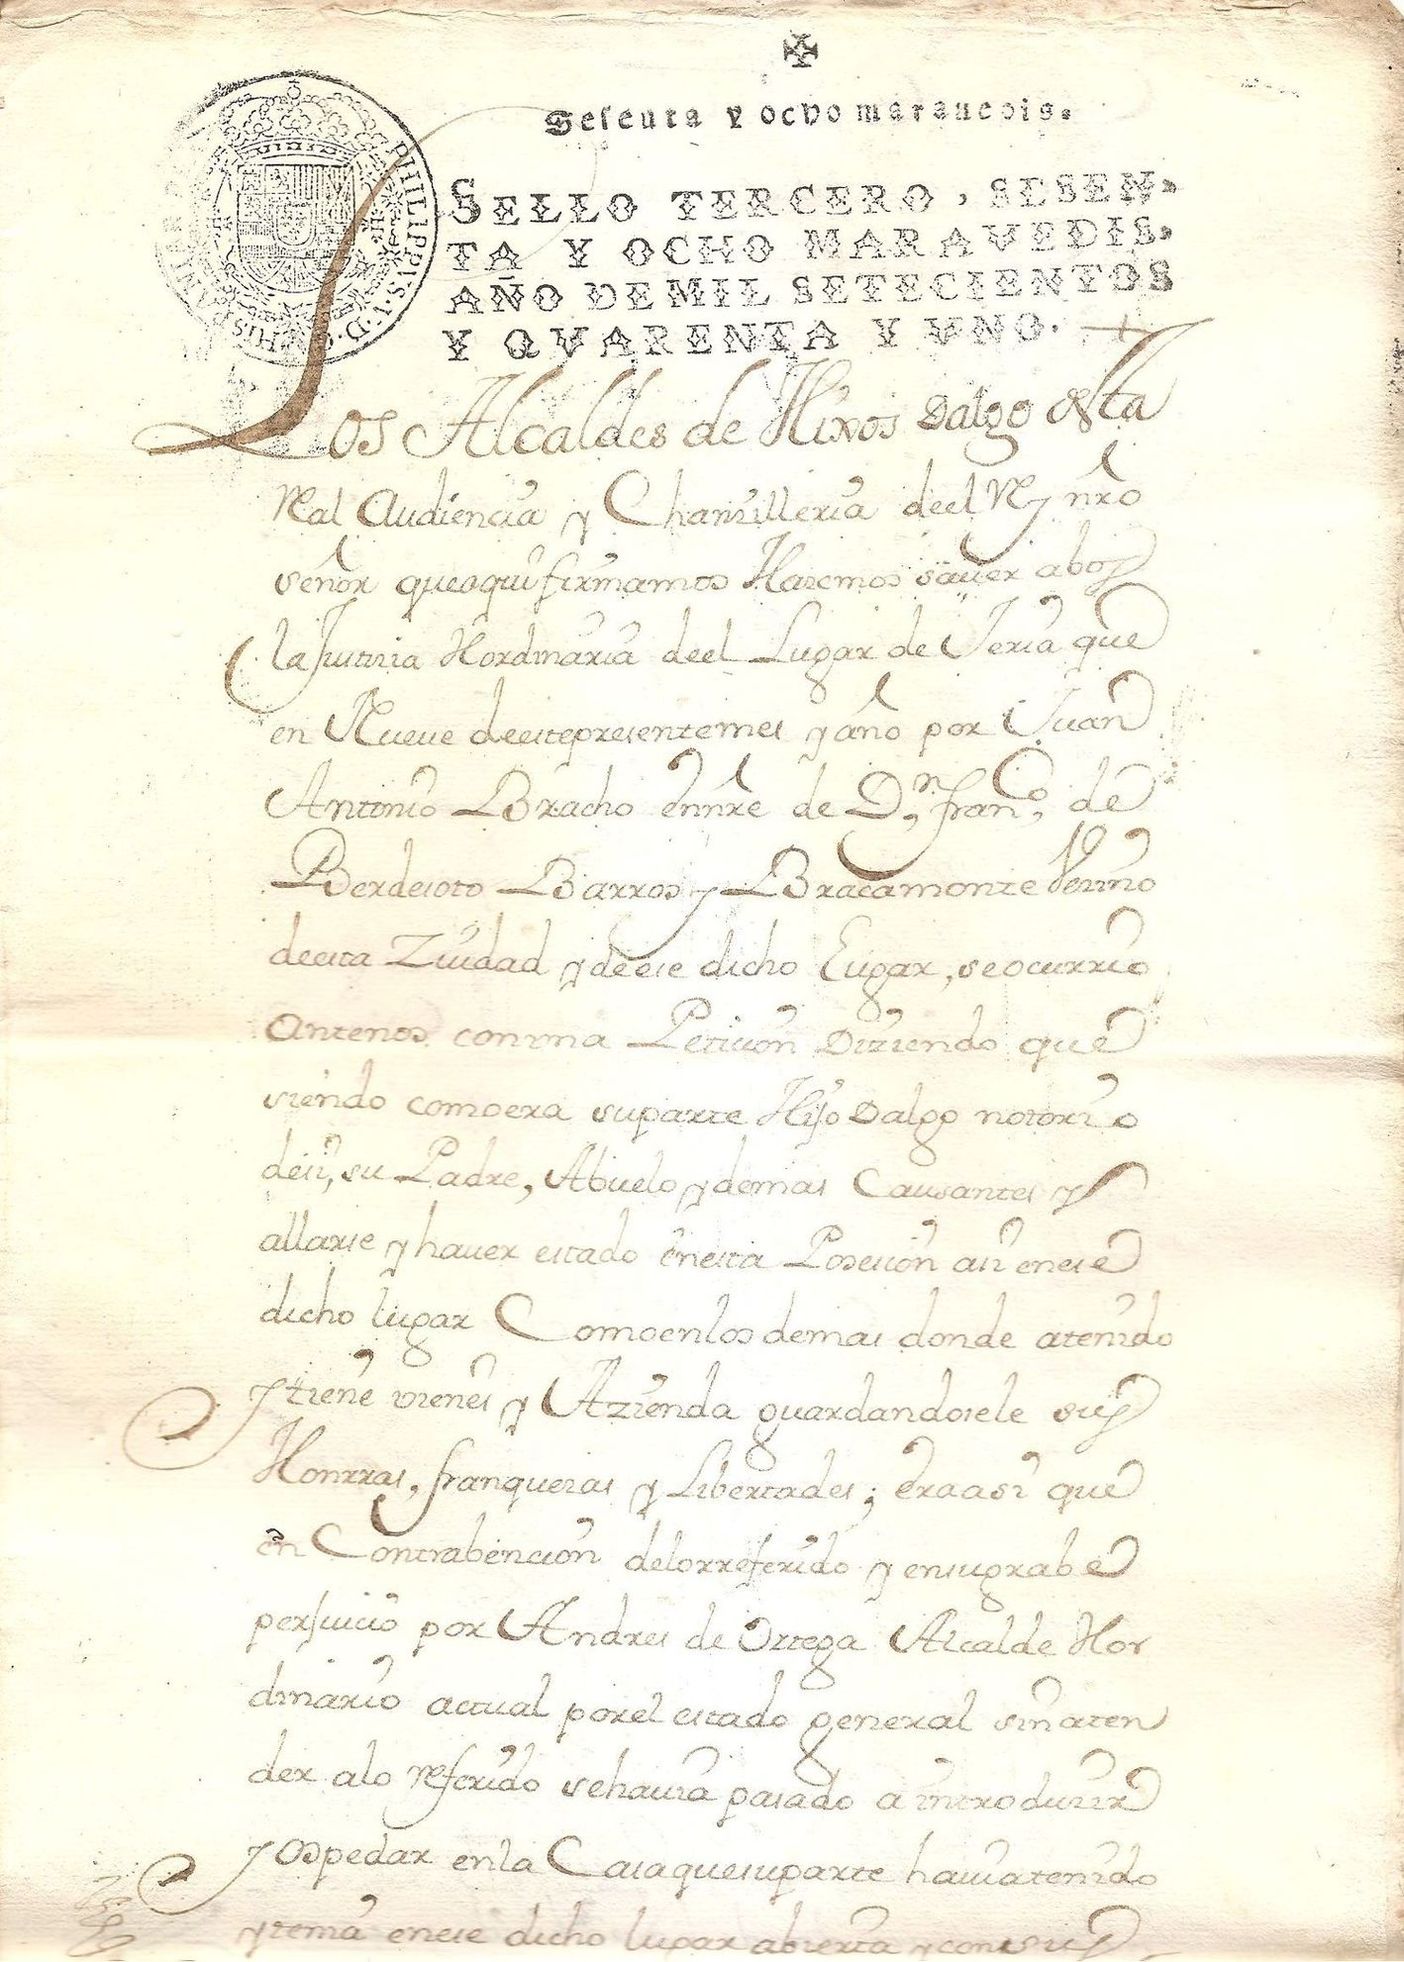 ✠
Sesenta y ocho maravedis.
PHILIPPUS V. D. G. HISPANIAR
SELLO TERCERO, SESEN-
TA Y OCHO MARAVEDIS,
AÑO DE MIL SETECIENTOS
Y QVARENTA Y VNO.
Los Alcaldes de Hixos Dalgo desta
Real Audiencia y Chanzilleria deel Rey nro
señor que aqui firmamos Hazemos sauer abos
la Justizia Hordinaria deel Lugar de Jeria que
en Nueue deestepresentemes y año por Juan
Antonio Bracho ennre de Dn. Franco. de
Berdesoto Barros y Bracamonte Vezino
deesta Ziudad y deese dicho Lugar, se ocurrio
Antenos con una Petizion Diziendo que
siendo comoera suparte Hijo Dalgo notorio
desi, su Padre, Abuelo y demas Causantes y
allarse y hauer estado enesta Posesion asi enese
dicho lugar Comoenlos demas donde atenido
y tiene vienes y Azienda guardandosele sus
Honrras, franquezas y Libertades; eraasi que
en Contrabencion delorreferido y ensugrabe
perjuicio por Andres de Ortega Alcalde Hor
dinario actual porel estado general sinaten
der alo referido sehauia pasado a introduzir
y Ospedar enla Casaquesuparte hauiatenido
ytenia enese dicho lugar abierta y consus